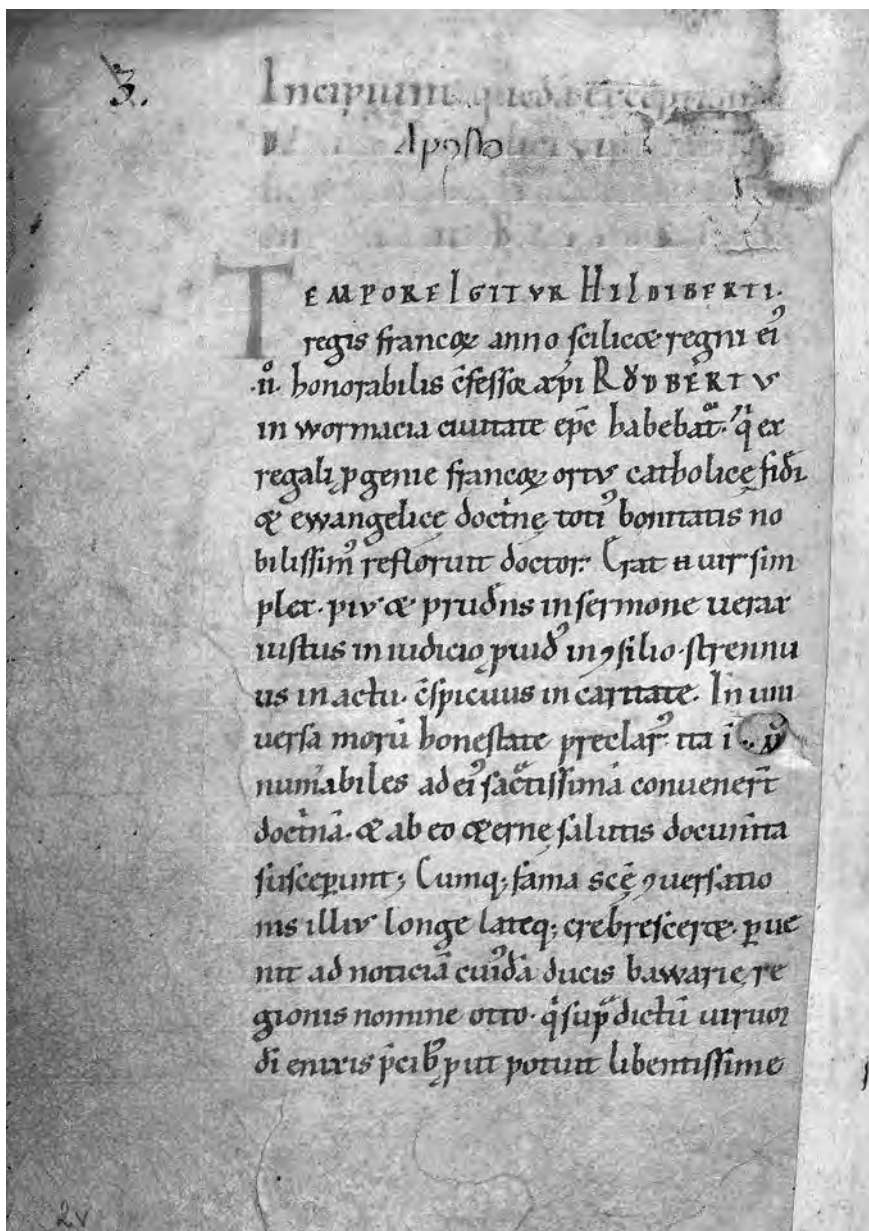 3.
Incipiunt quedā
Aposto
TEMPORE IGITVR HILDIBERTI.
regis francoꝝ anno scilicet regni ei᾿
.ii. honorabilis c̄fessor xp̄i RODBERTVS
in wormacia ciuitate ep̄c habebat᷑. q̇ ex
regali ꝓgenie francoꝝ ortus catholicę fidei
et ewangelicę doctrinę toti᾿ bonitatis no
bilissim᾿ refloruit doctor. Erat n̄ uir sim
plex. pius et prudens in sermone uerax
iustus in iudicio ꝓuid᾿ in ꝯsilio. strennu
us in actu. c̄spicuus in caritate. In uni
uersa morū honestate preclar᾿ ita
numͥabiles ad ei᾿ sāctissimā conuenerͭ
doctͥnā. et ab eo eternę salutis documͭta
susceꝑunt; Cumq; fama scę̄ ꝯuersatio
nis illius longe lateq; crebresceret. ꝑue
nit ad noticiā cui᾿dā ducis bawarię re
gionis nomine otto. q̇ supᷓdictū uirum
di enixis p̄cib᾿ ꝓut potuit libentissime
2v